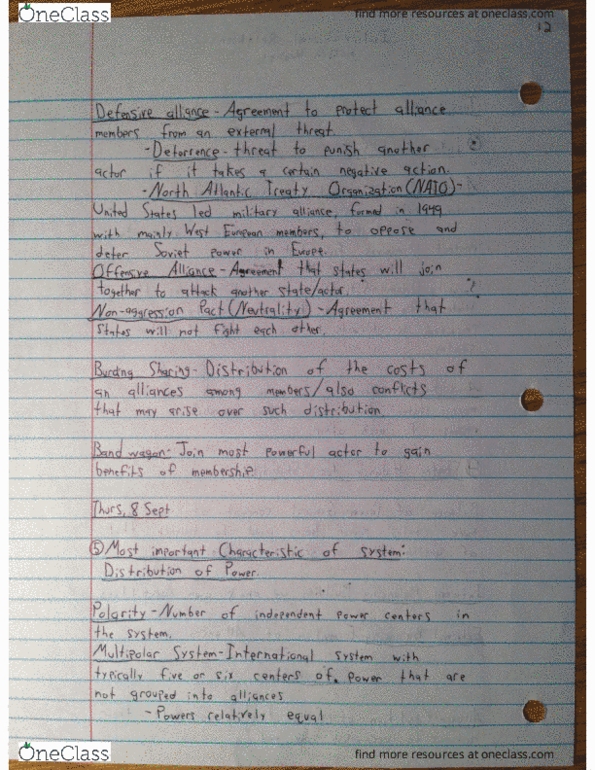 OneClass
find more resources at oneclass.com
12
Defensive alliance - Agreement to protect alliance
members from an external threat.
- Deterrence - threat to punish another
actor if it takes a certain negative action.
- North Atlantic Treaty Organization (NATO) -
United States led military alliance, formed in 1949
with mainly West European members, to oppose and
deter Soviet power in Europe.
Offensive Alliance - Agreement that states will join
together to attack another state/actor.
Non-aggression Pact (Neutrality) - Agreement that
States will not fight each other.
Burding Sharing - Distribution of the costs of
an alliances among members/also conflicts
that may arise over such distribution.
Bandwagon: Join most powerful actor to gain
benefits of membership.
Thurs, 8 Sept
⑤ Most important Characteristic of system:
Distribution of Power.
Polarity - Number of independent power centers in
the system.
Multipolar System - International system with
typically five or six centers of power that are
not grouped into alliances
- Powers relatively equal
OneClass
find more resources at oneclass.com